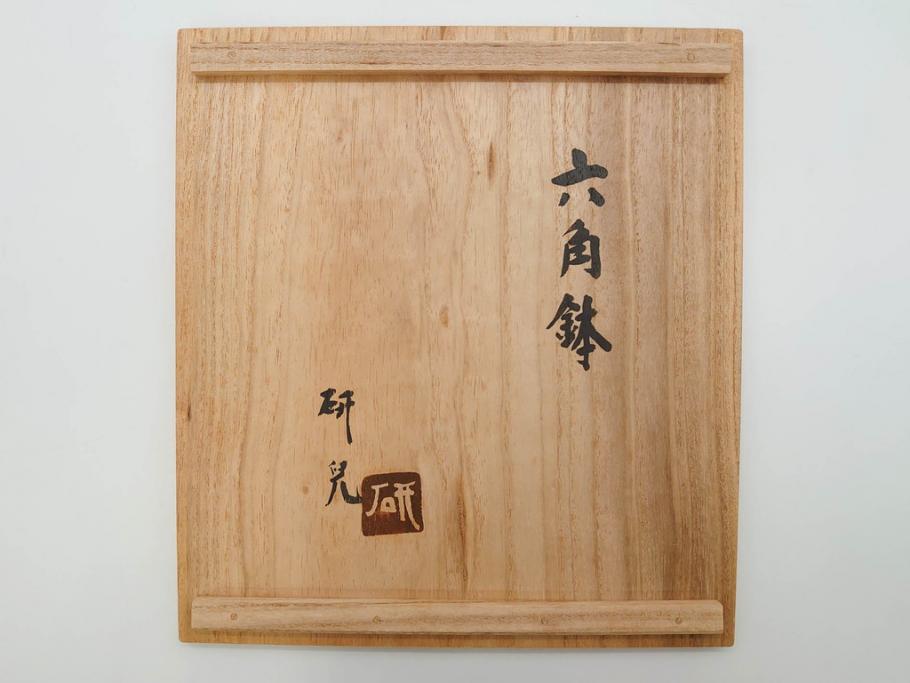 六角鉢
研兒
研